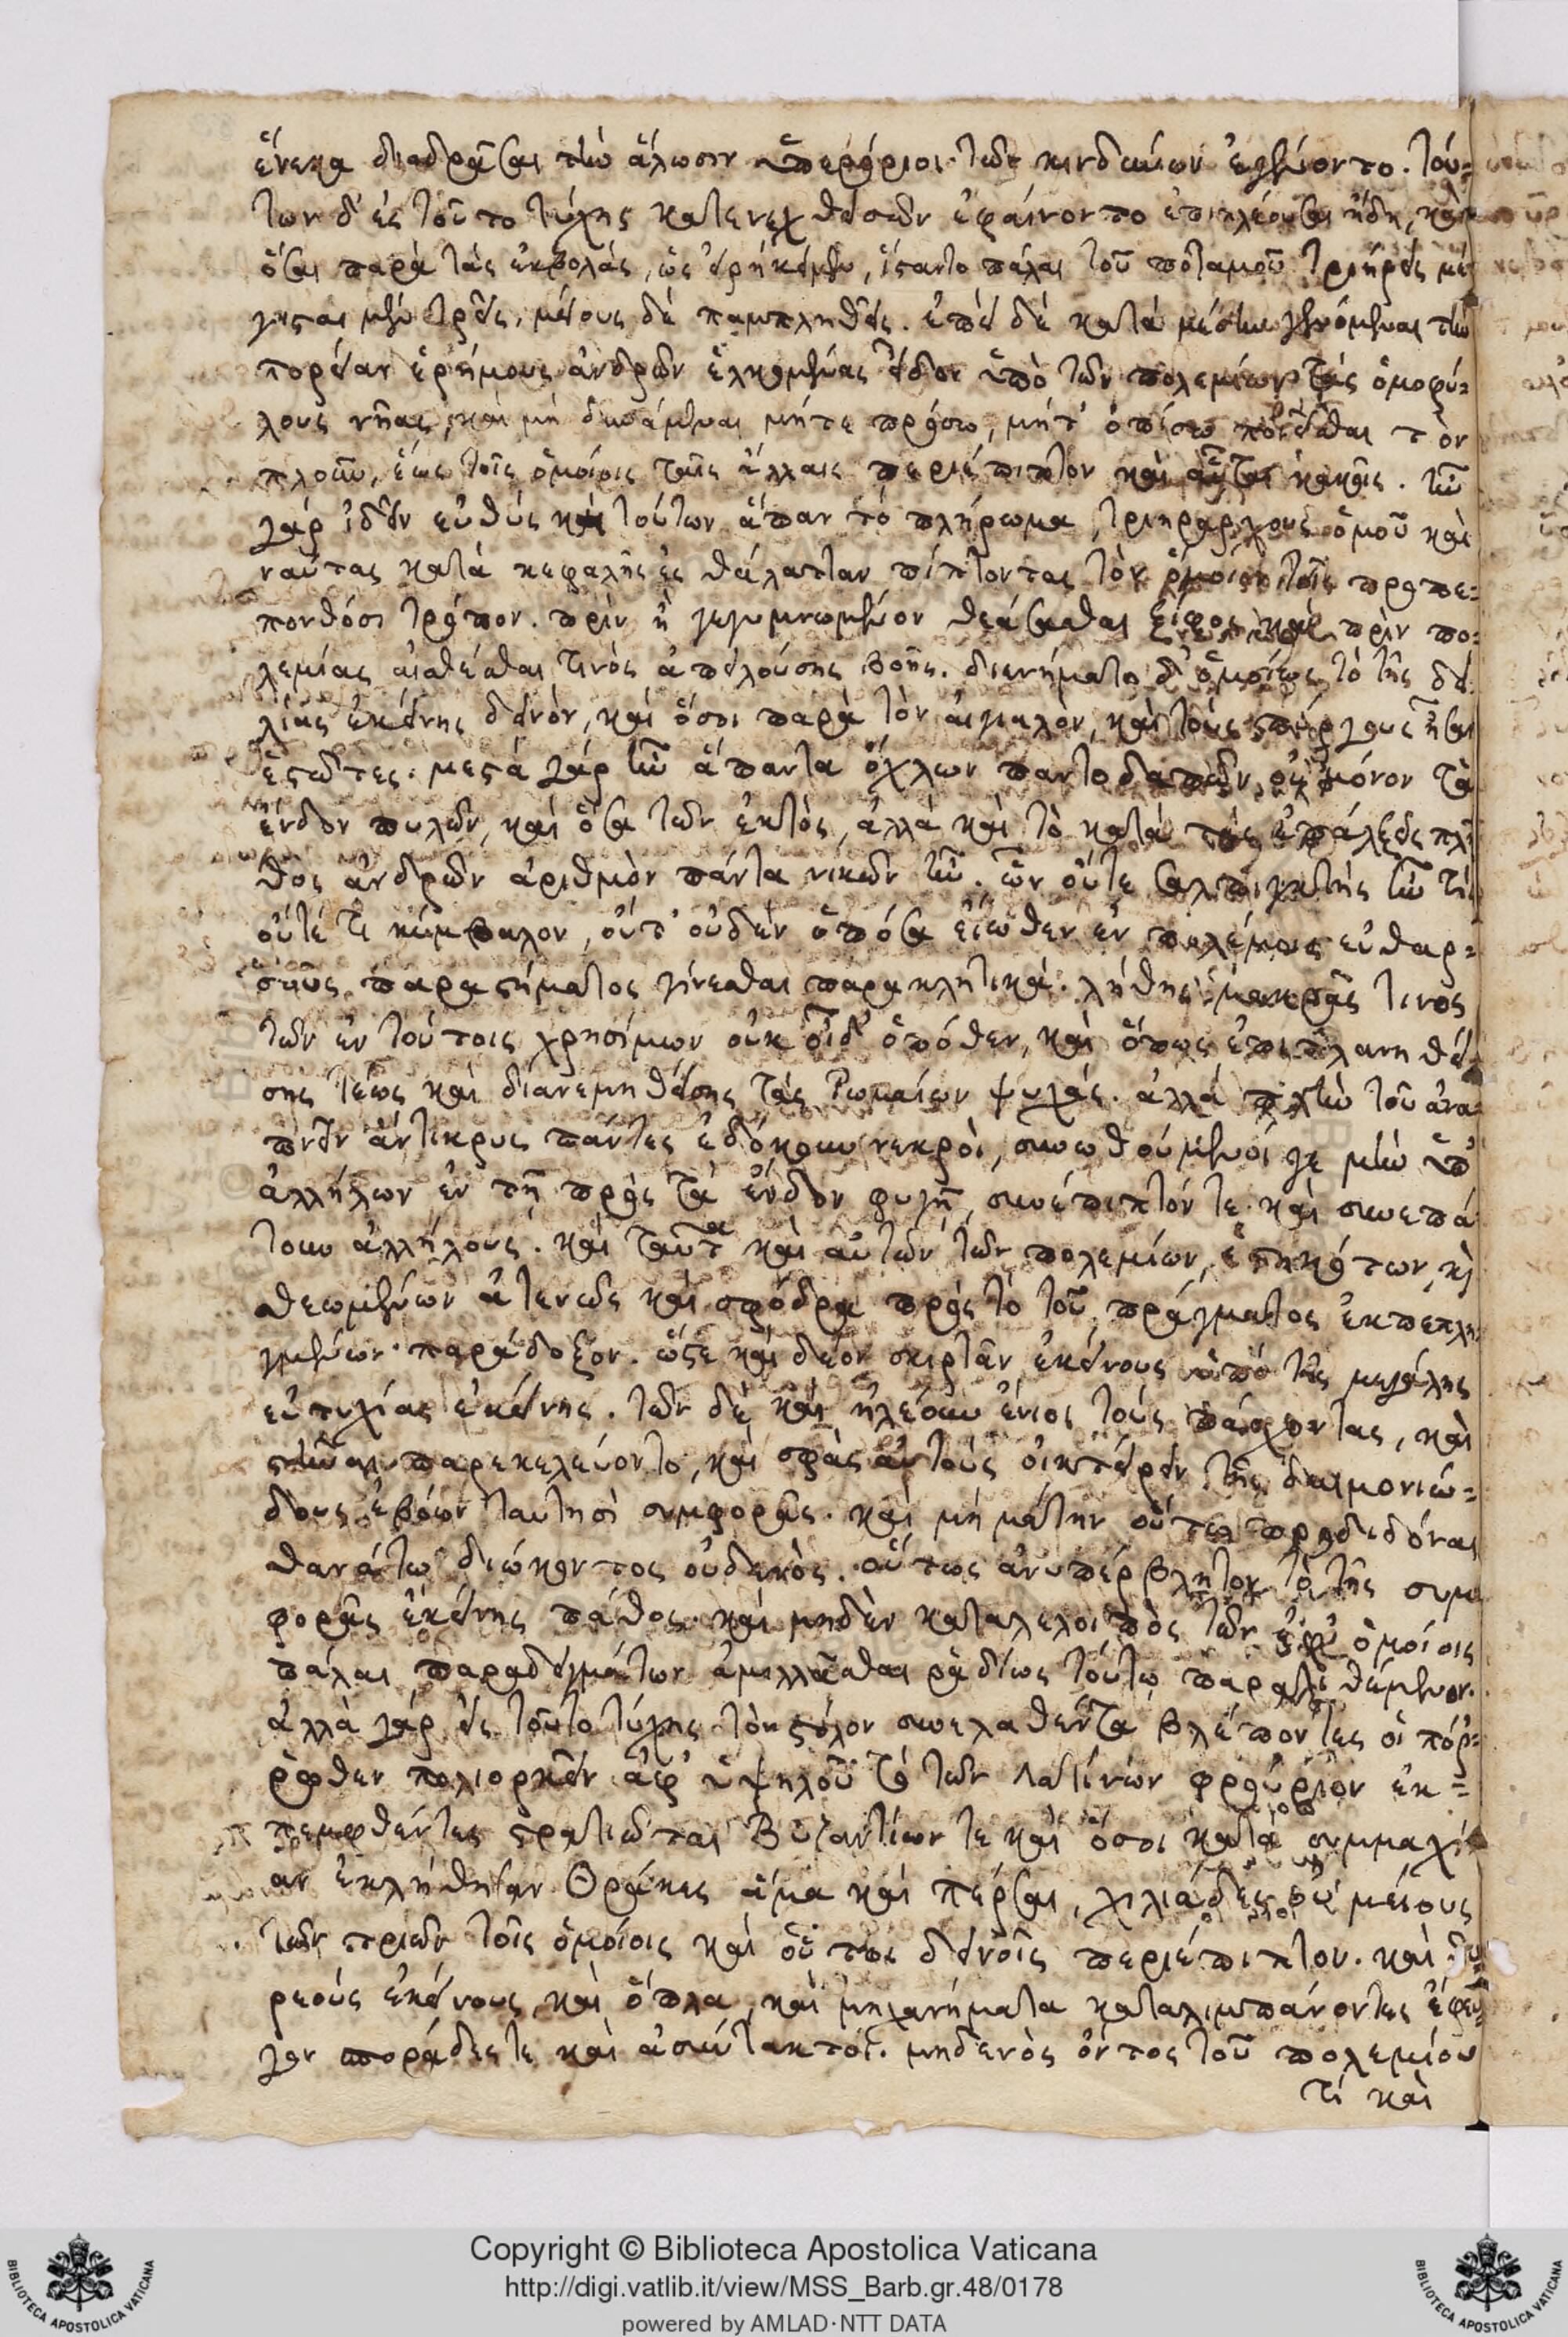 ἕνεκα διαδρᾶσαι τὴν ἅλωσιν ὑπερόριοι τῶν κινδύνων ἐγένοντο. τού-
των δ' ἐς τοῦτο τύχης κατενεχθεισῶν ἐφαίνοντο ἐπιπλέουσαι ἤδη, καὶ
ὅσαι παρὰ τὰς ἐκβολὰς, ὡς εἰρήκειμεν, ἵσταντο πάλαι τοῦ ποταμοῦ τριήρεις μέ
γισται μὲν τρεῖς, μείους δὲ παμπληθεῖς. ἐπεὶ δὲ κατὰ μέσην γενόμεναι τὴν
πορείαν ἐρήμους ἀνδρῶν ἑλκομένας εἶδον ὑπὸ τῶν πολεμίων τὰς ὁμοφύ-
λους νῆας, καὶ μὴ δυνάμεναι μήτε πρόσω, μήτ' ὀπίσω ποιεῖσθαι τὸν
πλοῦν, ἕως τοῖς ὁμοίοις ταῖς ἄλλαις περιέπιπτον καὶ αὗται κακοῖς. ἦν
γὰρ ἰδεῖν εὐθὺς καὶ τούτων ἅπαν τὸ πλήρωμα, τριηράρχους ὁμοῦ καὶ
ναύτας κατὰ κεφαλῆς ἐς θάλατταν πίπτοντας τὸν ὅμοιον τοῖς προπε-
πονθόσι τρόπον. πρὶν ἢ γεγυμνωμένον θεάσασθαι ξίφος καὶ πρὶν πο-
λεμίας αἰσθέσθαι τινὸς ἀπειλούσης βοῆς. διενείματο δ' ὁμοίως τὸ τῆς δει
λίας ἐκείνης δεινὸν, καὶ ὅσοι παρὰ τὸν αἰγιαλὸν, καὶ τοὺς πύργους ἦσαν
ἑστῶτες. μεστὰ γὰρ ἦν ἅπαντα ὄχλων παντοδαπῶν, οὐ μόνον τὰ
ἔνδον πυλῶν, καὶ ὅσα τῶν ἐκτὸς, ἀλλὰ καὶ τὸ κατὰ τὰς ἐπάλξεις πλῆ
θος ἀνδρῶν ἀριθμὸν πάντα νικῶν ἦν. ὧν οὔτε σαλπιγκτὴς ἦν τις
οὔτέ τι κύμβαλον, οὔτ' οὐδὲν ὁπόσα εἴωθεν ἐν πολέμοις εὐθαρ-
σοῦς παραστήματος γίνεσθαι παρακλητικά. λήθης μακρᾶς τινος
τῶν ἐν τούτοις χρησίμων οὐκ οἶδ' ὁπόθεν, καὶ ὅπως ἐπιπλανηθεί
σης τέως καὶ διανεμηθείσης τὰς Ῥωμαίων ψυχάς. ἀλλὰ πλὴν τοῦ ἀνα-
πνεῖν ἄντικρυς πάντες ἐδόκουν νεκροὶ, συνωθούμενοί γε μὴν ὑπ'
ἀλλήλων ἐν τῇ πρὸς τὰ ἔνδον φυγῇ, συνέπιπτόν τε καὶ συνεπά
τουν ἀλλήλους. καὶ ταῦτα καὶ αὐτῶν τῶν πολεμίων, ἑστηκότων, κỳ
θεωμένων ἀτενῶς καὶ σφόδρα πρὸς τὸ τοῦ πράγματος ἐκπεπλη-
γμένων παράδοξον. ὥστε καὶ δέον σκιρτᾶν ἐκείνους ὑπὸ τῆς μεγάλης
εὐτυχίας ἐκείνης. τῶν δὲ καὶ ἠλέουν ἔνιοι τοὺς πάσχοντας, καὶ
στῆναι παρεκελεύοντο, καὶ σφᾶς αὐτοὺς οἰκτείρειν τῆς δαιμονιώ-
δους ἐβόων ταύτησὶ συμφορᾶς. καὶ μὴ μάτην οὕτω προδεδόναι
θανάτῳ διώκοντος οὐδενός. οὕτως ἀνυπέρβλητον τὸ τῆς συμ
φορᾶς ἐκείνης πάθος. καὶ μηδὲν καταλελοιπὸς τῶν ἐφ' ὁμοίοις
πάλαι παραδειγμάτων ἁμιλλᾶσθαι ῥᾳδίως τούτῳ παρατιθέμενον.
ἀλλὰ γὰρ ἐς τοῦτο τύχης τὸν στόλον συνελαθέντα βλέποντες οἱ πόρ-
ρωθεν πολιορκεῖν ἀφ' ὑψηλοῦ τὸ τῶν Λατίνων φρούριον ἐκ-
πεμφθέντες στρατιῶται Βυζαντίων τε καὶ ὅσοι κατὰ συμμαχί
αν ἐκλήθησαν Θρᾷκες ἅμα καὶ πέρσαι, χιλιάδες οὐ μείους
τῶν τριῶν τοῖς ὁμοίοις καὶ οὗτοι δεινοῖς περιέπιπτον. καὶ θυ
ρεοὺς ἐκείνους, καὶ ὅπλα, καὶ μηχανήματα καταλιμπάνοντες ἔφευ-
γον σποράδες τε καὶ ἀσύντακτοι. μηδενὸς ὄντος τοῦ πολεμίου
τί καὶ
Copyright © Biblioteca Apostolica Vaticana
http://digi.vatlib.it/view/MSS_Barb.gr.48/0178
powered by AMLAD·NTT DATA